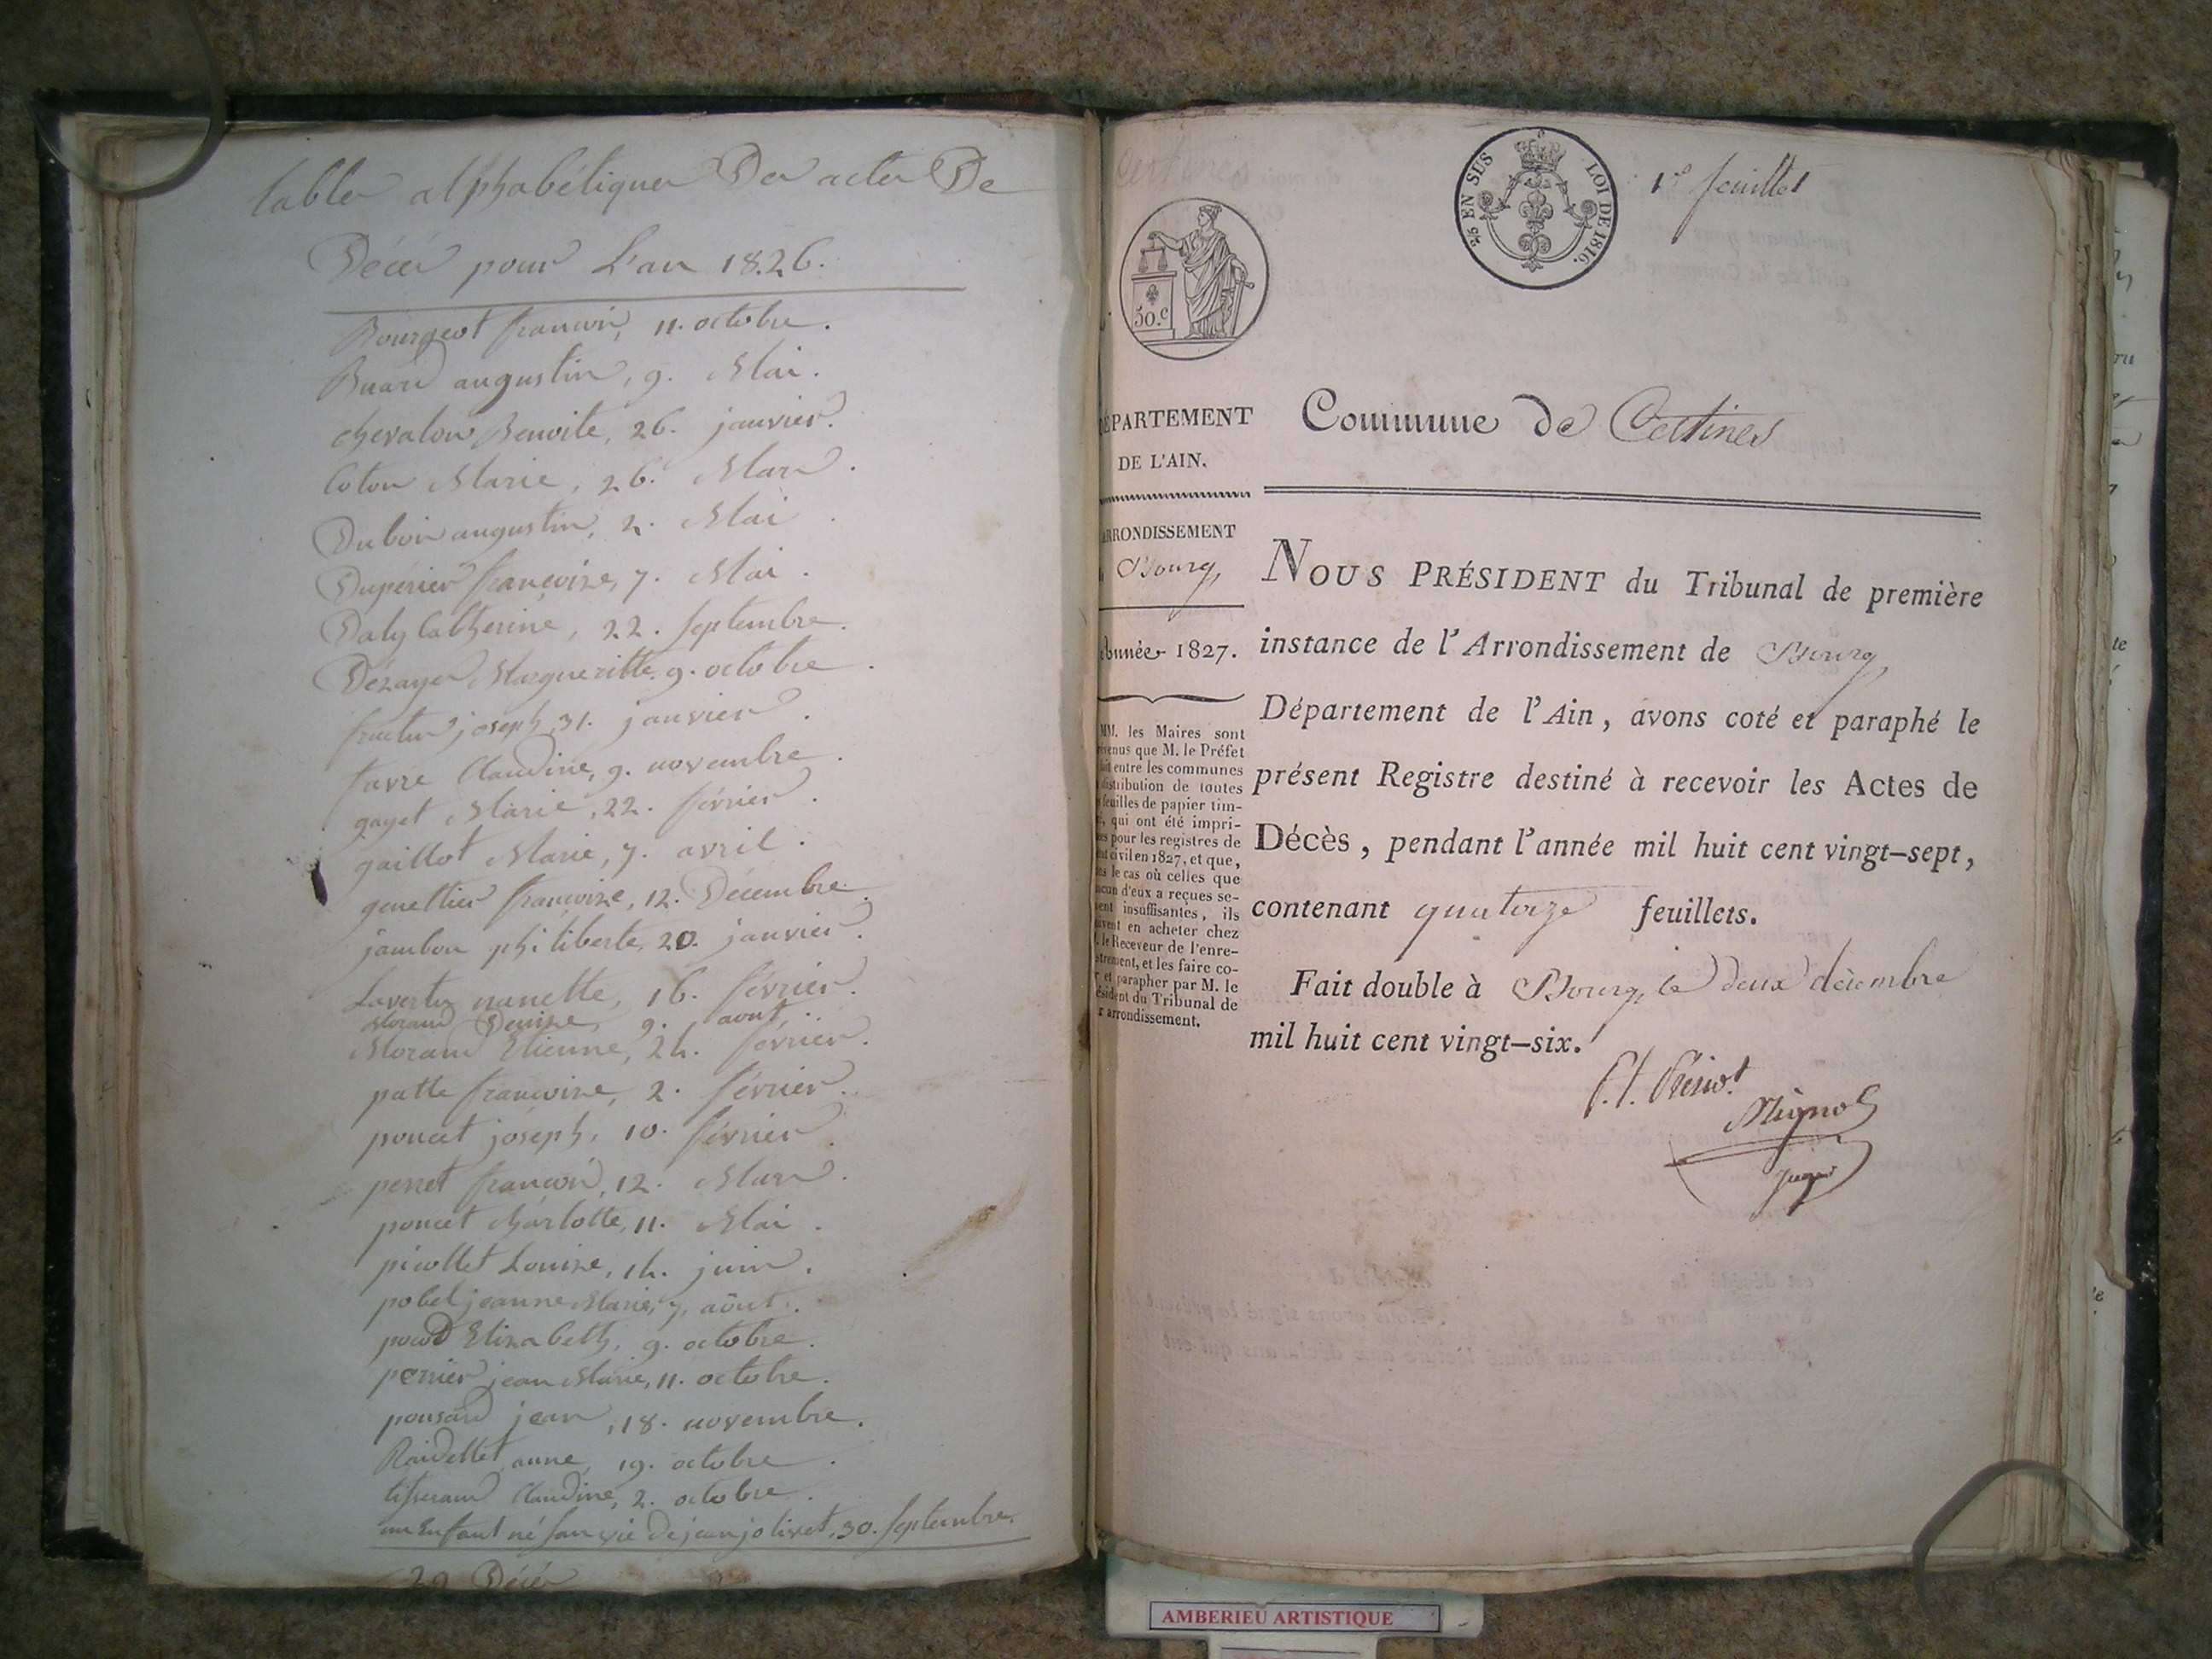 tables alphabétiques Des actes De
Décès pour L'an 1826.
Bourgeot françois, 11. octobre.
Buard augustin, 9. Mai.
chevalon Benoite, 26. janvier.
Coton Marie, 26. Mars.
Dubois augustin, 2. Mai.
Dupérier françoise, 7. Mai.
Daly Catherine, 22. septembre.
Dézayes Margueritte, 9. octobre.
joseph, 31. janvier.
favre Claudine, 9. novembre.
gayet Marie, 22. février.
gaillot Marie, 7. avril.
genellier françoise, 12. Décembre.
jambon philiberte, 20. janvier.
nanette, 16. février.
Morand Denise, 9. aout.
Morand Etienne, 24. février.
patte françoise, 2. février.
poncet joséph, 10. février.
perret françois, 12. Mars.
poncet charlotte, 11. Mai.
picollet Louise, 14. juin.
pobel jeanne Marie, 7. aôut.
Elizabeth, 9. octobre.
perrier jean Marie, 11. octobre.
ponsard jean, 18. novembre.
Raidellet anne, 19. octobre.
tisserand Claudine, 2. octobre.
un Enfant né san vie De jean jolivet, 30. septembre.
29 Décès
2/5 EN SUS LOI DE 1816.
1er feuillet
50.c
DÉPARTEMENT
DE L'AIN.
Commune de Certines
ARRONDISSEMENT
Bourg
Année 1827.
NOUS PRÉSIDENT du Tribunal de première
instance de l'Arrondissement de Bourg
Département de l'Ain, avons coté et paraphé le
présent Registre destiné à recevoir les Actes de
Décès, pendant l'année mil huit cent vingt-sept,
contenant quatorze feuillets.
Fait double à Bourg, le deux décembre
mil huit cent vingt-six.
MM. les Maires sont
venus que M. le Préfet
fait entre les communes
distribution de toutes
feuilles de papier tim-
qui ont été impri-
pour les registres de
civil en 1827, et que,
le cas où celles que
d'eux a reçues se-
insuffisantes, ils
en acheter chez
le Receveur de l'enre-
et les faire co-
et parapher par M. le
Président du Tribunal de
arrondissement.
Mignot
juge
AMBERIEU ARTISTIQUE